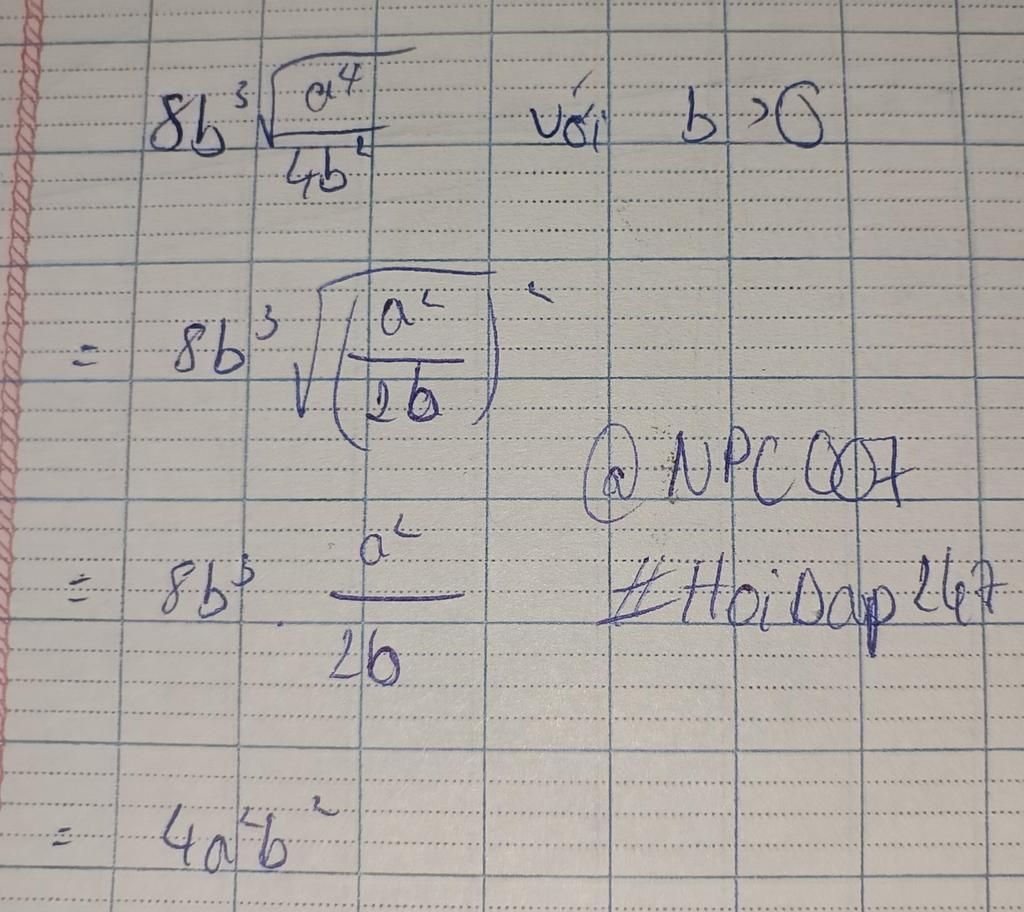 8b³ √(a⁴/4b²) với b > 0
= 8b³ √(a²/2b)²
@NPC007
= 8b³ a²/2b
#HoiDap247
= 4a²b²